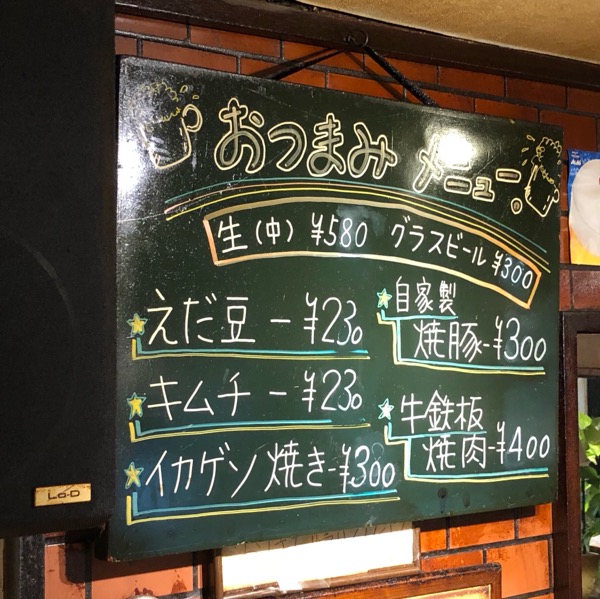 おつまみ メニュー。
生(中) ¥580 グラスビール ¥300
えだ豆 ー ¥230
キムチ ー ¥230
イカゲソ焼き-¥300
自家製
焼豚-¥300
牛鉄板
焼肉-¥400
Lo-D
Asahi